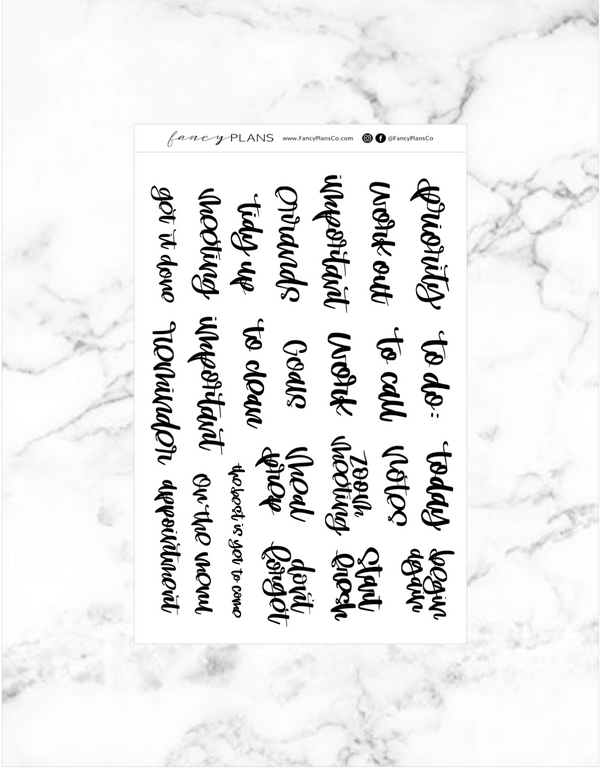 fancy PLANS www.FancyPlansCo.com @FancyPlansCo
priority
to do:
today
begin
again
work out
to call
Notes
Start
fresh
important
Work
Zoom
meeting
don't
forget
errands
Goals
Meal
prep
tidy up
to clean
the best is yet to come
meeting
important
On the menu
got it done
reminder
appointment